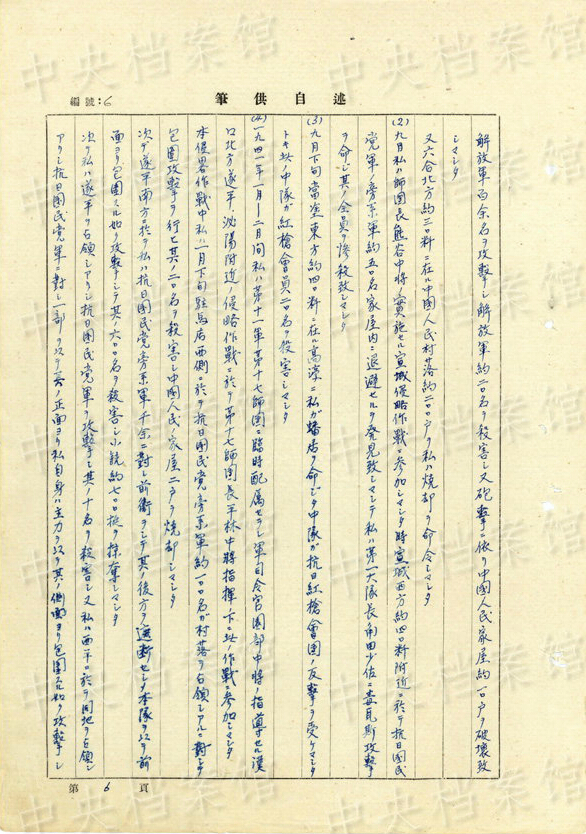 編號:6
述自供筆
解放軍百余名ヲ攻撃シ解放軍約二〇名ヲ殺害シ又砲撃ニ依リ中國人民家屋約一〇戸ヲ破壊致
シマシタ
又六合北方約二〇粁ニ在ル中國人民村落約二〇〇戸ヲ私ハ焼却ヲ命令シマシタ
(2)九月私ハ師団長熊谷中将ノ實施セル宣城侵略作戰ニ参加シマシタ時宣城西方約四〇粁附近ニ於テ抗日國民
党軍ノ旁系軍約五〇名家屋内ニ退避セルヲ発見致シマシテ私ハ第一大隊長角田少佐ニ毒瓦斯攻撃
ヲ命ジ其ノ全員ヲ惨殺致シマシタ
(3)九月下旬當塗東方約四〇粁ニ在ル高淳ニ私ガ蟠居ヲ命ジタ中隊ガ抗日紅槍會團ノ反撃ヲ受ケマシタ
トキ此ノ中隊ガ紅槍會員二〇名ヲ殺害シマシタ
(4)一九四一年一月—二月間私ハ第十一軍第十七師団ニ臨時配属セラレ軍司令官園部中将ノ指導セル漢
口北方遂平泌陽附近ノ侵略作戰ニ於テ第十七師団長平林中将指揮ノ下ニ此ノ作戰ニ参加シマシタ
本侵畧作戰中私ハ一月下旬駐馬店西側ニ於テ抗日國民党旁系軍約一〇〇名ガ村落ヲ占領シアルニ對シ
包囲攻撃ヲ行ヒ其ノ二〇名ヲ殺害シ中國人民ノ家屋二戸ヲ焼却シマシタ
次デ遂平南方ニ於テ私ハ抗日國民党旁系軍千余ニ對シ前衛ヲシテ其ノ後方ヲ遮断セシメ本隊ヲ以テ前
面ヨリ包囲スル如ク攻撃シテ其ノ六〇〇名ヲ殺害シ小銃約七〇挺ヲ掠奪シマシタ
次ニ私ハ遂平ヲ占領シアリシ抗日國民党軍ヲ攻撃シ其ノ十名ヲ殺害シ又私ハ西平ニ於テ同地ヲ占領シ
アリシ抗日國民党軍ニ對シ一部ヲ以テ其ノ正面ヨリ私自身ハ主力ヲ以テ其ノ側面ヨリ包囲スル如ク攻撃シ
第6頁
中央档案馆